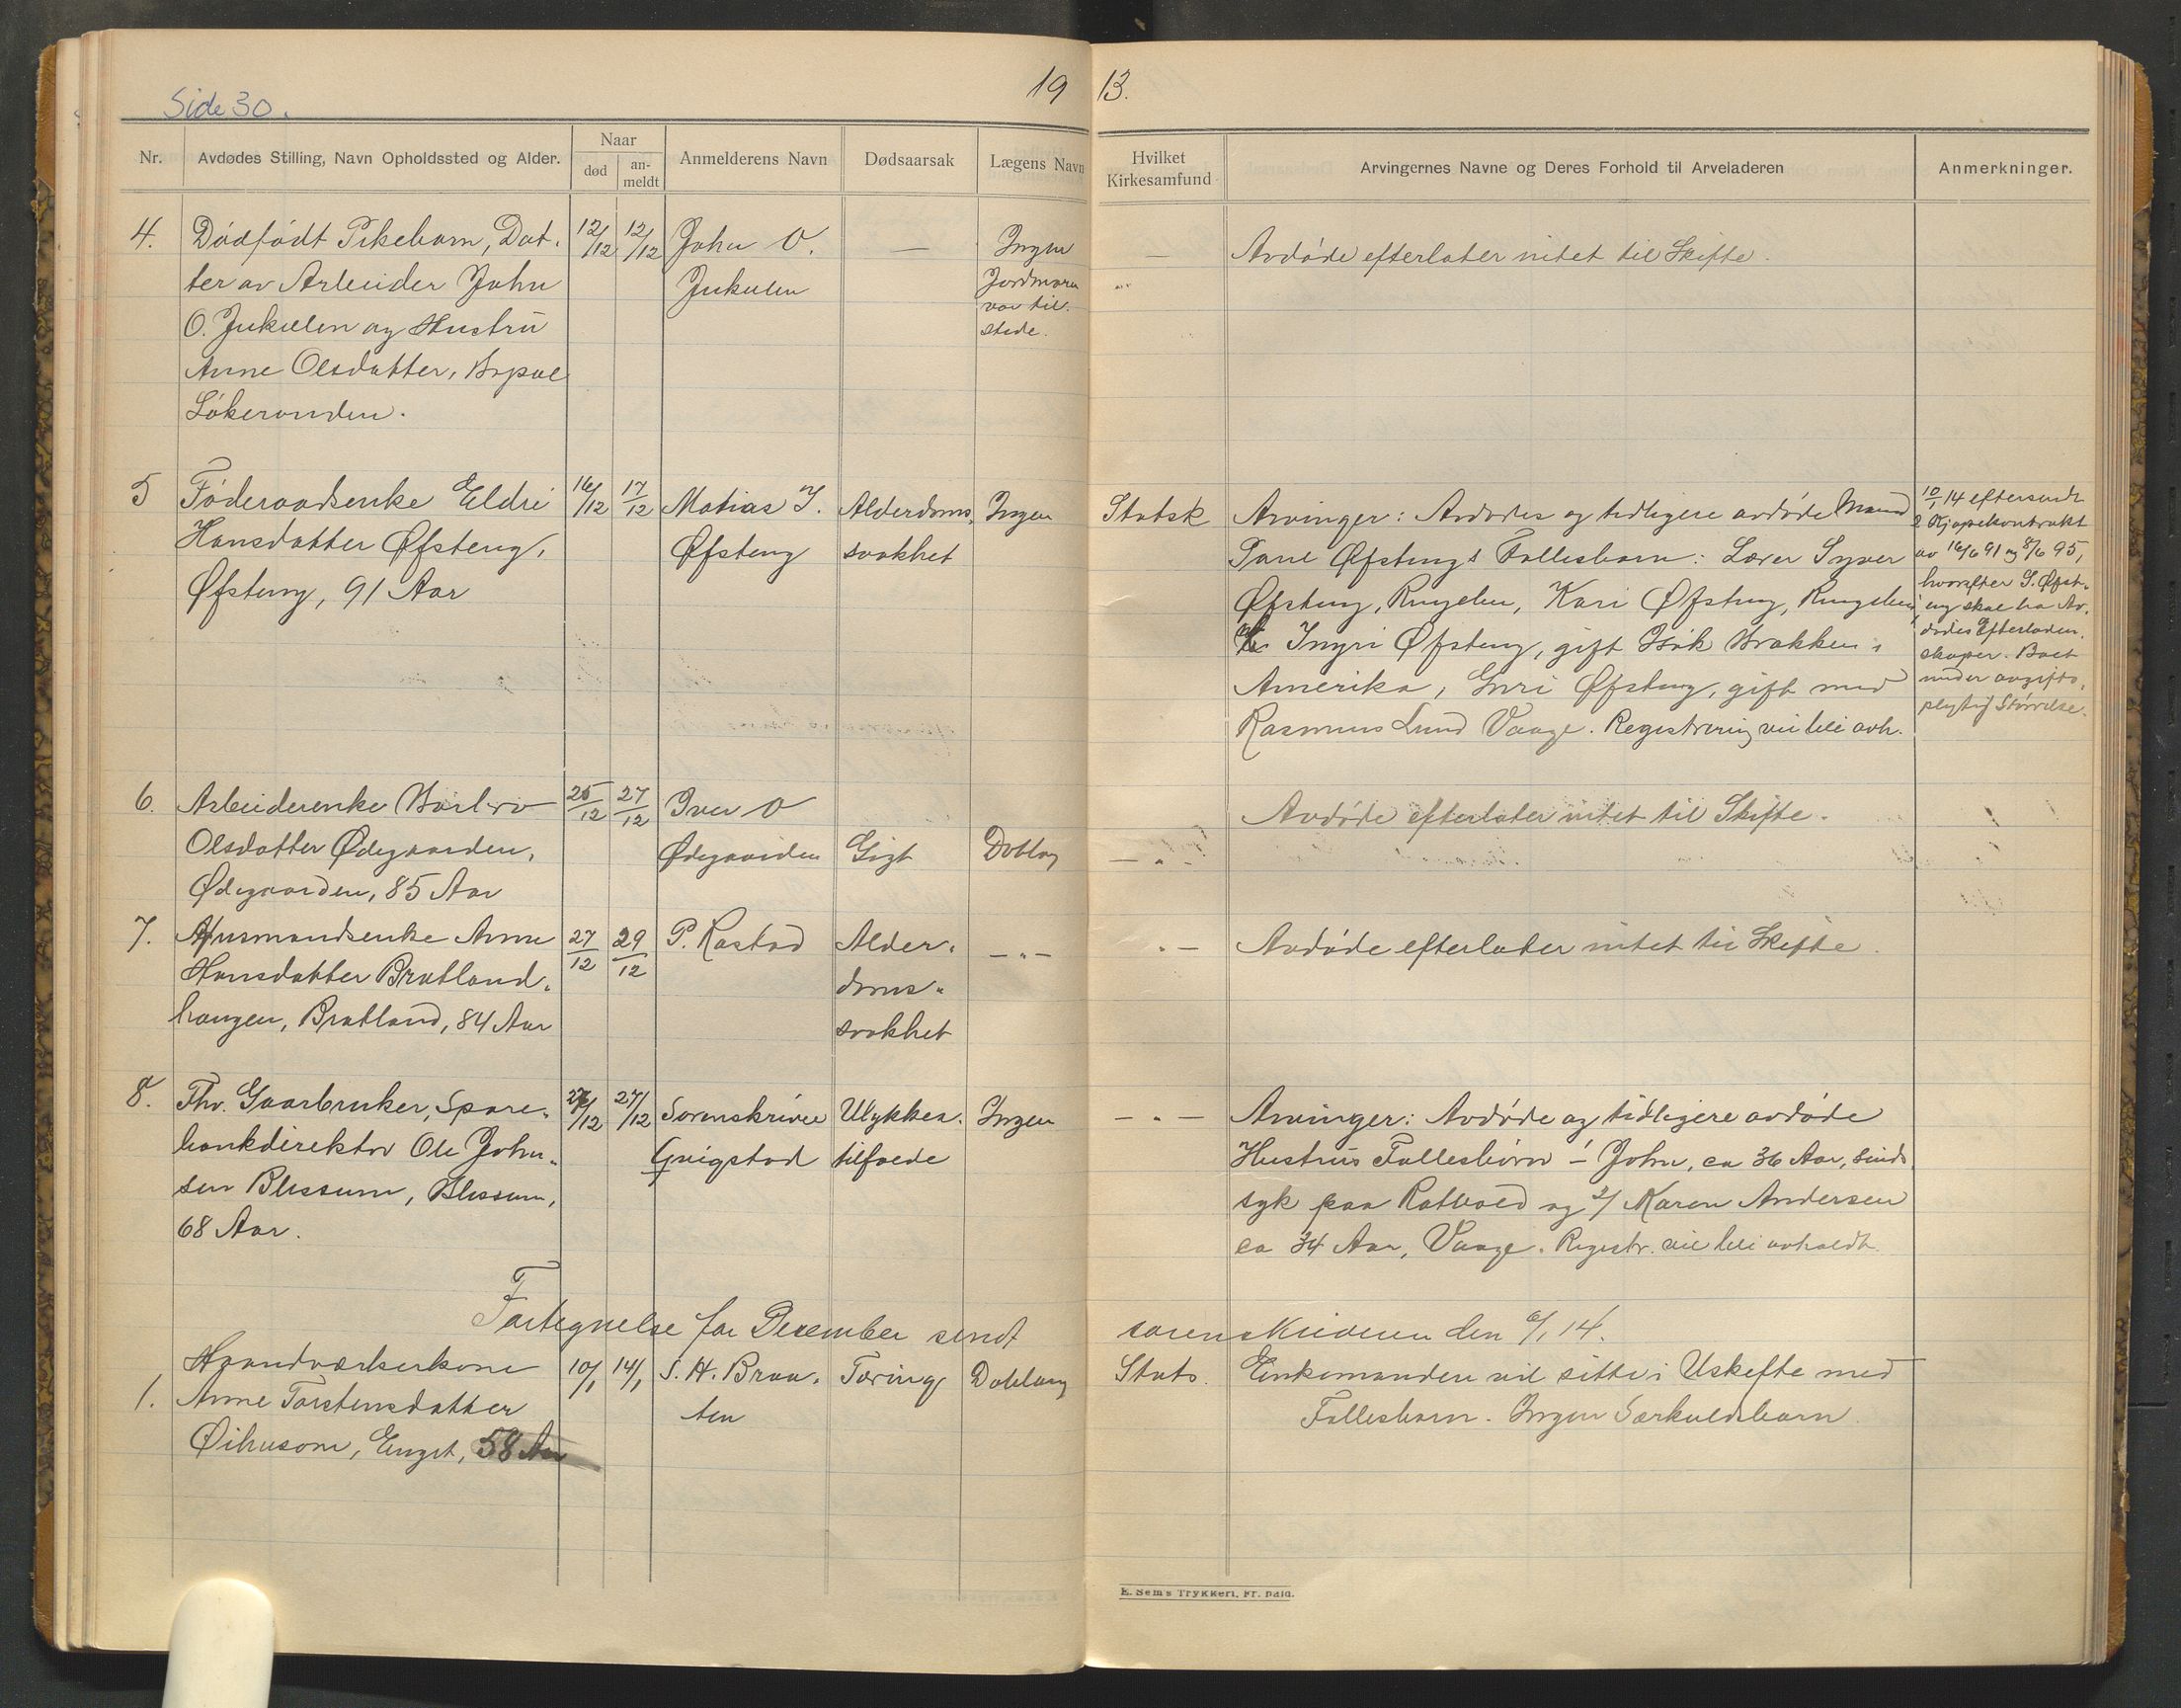 Side 30.
19 13.
Nr.
Avdødes Stilling, Navn Opholdssted og Alder.
Naar
død
an-
meldt
Anmelderens Navn
Dødsaarsak
Lægens Navn
Hvilket
Kirkesamfund
Arvingernes Navne og Deres Forhold til Arveladeren
Anmerkninger.
4.
Dødfødt Pikebarn, Dat-
ter av Arbeider John
O. Jukulen og Hustru
Anne Olsdatter,
Løkeranden.
12/12
12/12
John O.
Jukulen
—
Ingen
Jordmoren
var til-
stede.
—
Avdøde efterlater intet til Skifte.
5
Føderaadsenke Eldri
Hansdatter Øfsteng,
Øfsteng, 91 Aar
16/12
17/12
Matias I.
Øfsteng
Alderdoms-
svakhet
Ingen
Statsk
Arvinger: Avdødes og tidligere avdøde Mand
Øfstengs Fællesbarn: Lærer Syver
Øfsteng, Ringebu, Kari Øfsteng, Ringebu,
Ingri Øfsteng, gift Brakken i
Amerika, Guri Øfsteng, gift med
Rasmus Lund Vaage. Registrering vil bli avh.
10/1 14 eftersendt
2 Kjøpekontrakt
av 16/6 91 og 8/6 95,
hvorefter S. Øfst-
eng skal ha Av-
dødes Efterladen-
skaper. Boet
under avgifts-
pligtig Størrelse.
6.
Arbeiderenke Barbro
Olsdatter Ødegaarden,
Ødegaarden, 85 Aar
25/12
27/12
Iver O
Ødegaarden
Gigt
Doblaug
— „ —
Avdøde efterlater intet til Skifte.
7.
Husmandsenke Anne
Hansdatter Bratland-
haugen, Bratland, 84 Aar
27/12
29/12
P. Rastad
Alder-
doms-
svakhet
— „ —
„ —
Avdøde efterlater intet til Skifte.
8.
Fhv. Gaarbruker, Spare-
bankdirektør Ole John-
sen Blessum, Blessum,
68 Aar.
27/12
Sorenskriver
Grigstad
Ulykkes-
tilfælde
Ingen
— „ —
Arvinger: Avdøde og tidligere avdøde
Hustrus Fællesbørn - John, ca 36 Aar, sinds-
syk paa Rotvold og 2/ Karen Andersen
ca 34 Aar, Vaage. Registr. vil bli avholdt.
Fortegnelse for December sendt sorenskriveren den 6/1 14.
1.
Haandværkerkone
Anne Torstensdatter
Øihusom, Enget, 58 Aar
10/1
14/1
S. H. Braa-
ten
Tæring
Doblaug
Stats.
Enkemanden vil sitte i Uskifte med
Fællesbarn. Ingen Særkuldsbarn.
E. Sems Trykkeri, Fr.hald.